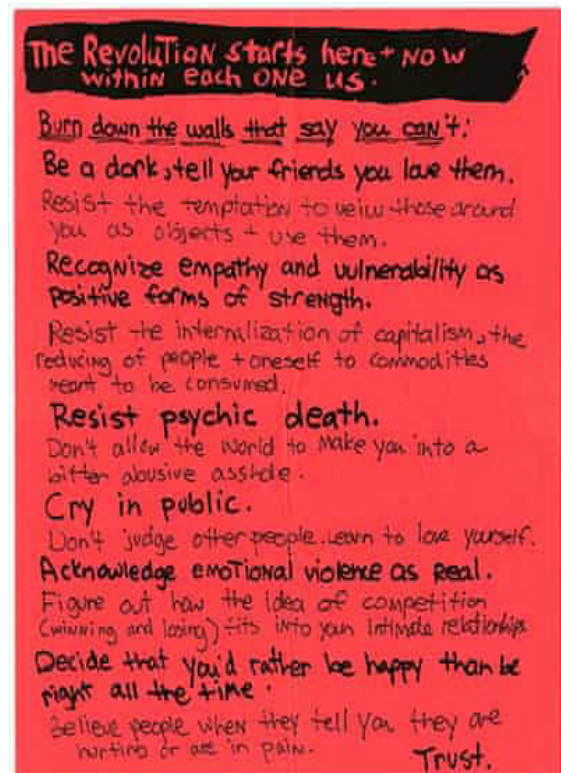 The Revolution starts here + now
within each one us.
Burn down the walls that say you can't:
Be a dork, tell your friends you love them.
Resist the temptation to veiw those around
you as objects + use them.
Recognize empathy and vulnerability as
positive forms of strength.
Resist the internalization of capitalism, the
reducing of people + oneself to commodities
meant to be consumed.
Resist psychic death.
Don't allow the world to make you into a
bitter abusive asshole.
Cry in public.
Don't judge other people. Learn to love yourself.
Acknowledge emotional violence as Real.
Figure out how the idea of competition
(winning and losing) fits into your intimate relationships
Decide that you'd rather be happy than be
right all the time.
Believe people when they tell you they are
hurting or are in pain.
Trust.